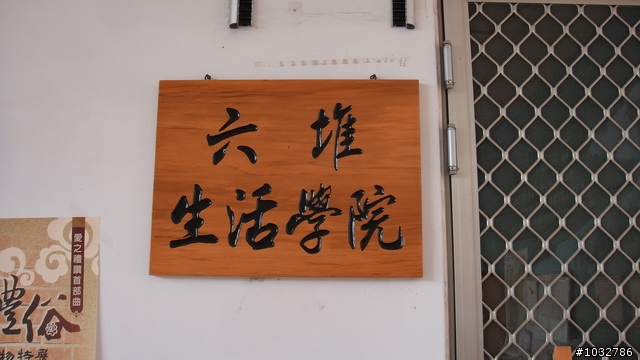 六堆
生活學院
愛之禮讚首部曲
禮俗
物特展
#1032786